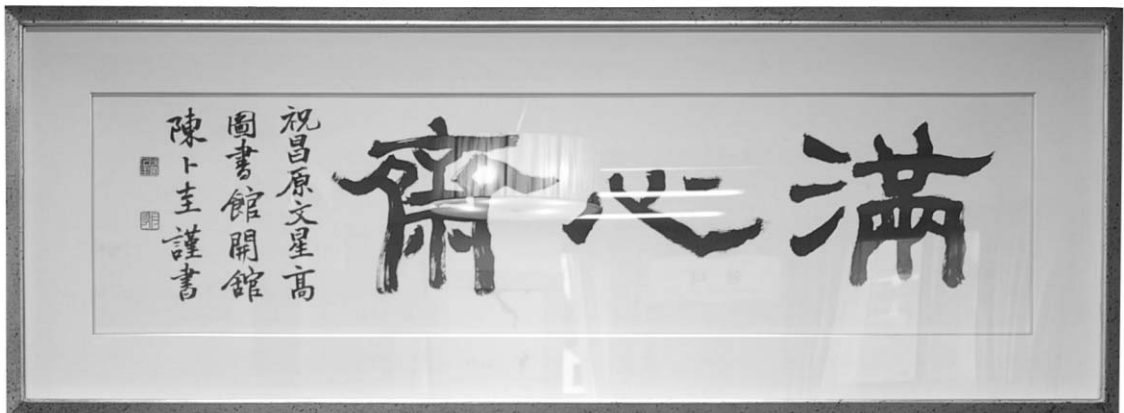 滿心齋
祝昌原文星高
圖書館開館
陳卜圭謹書